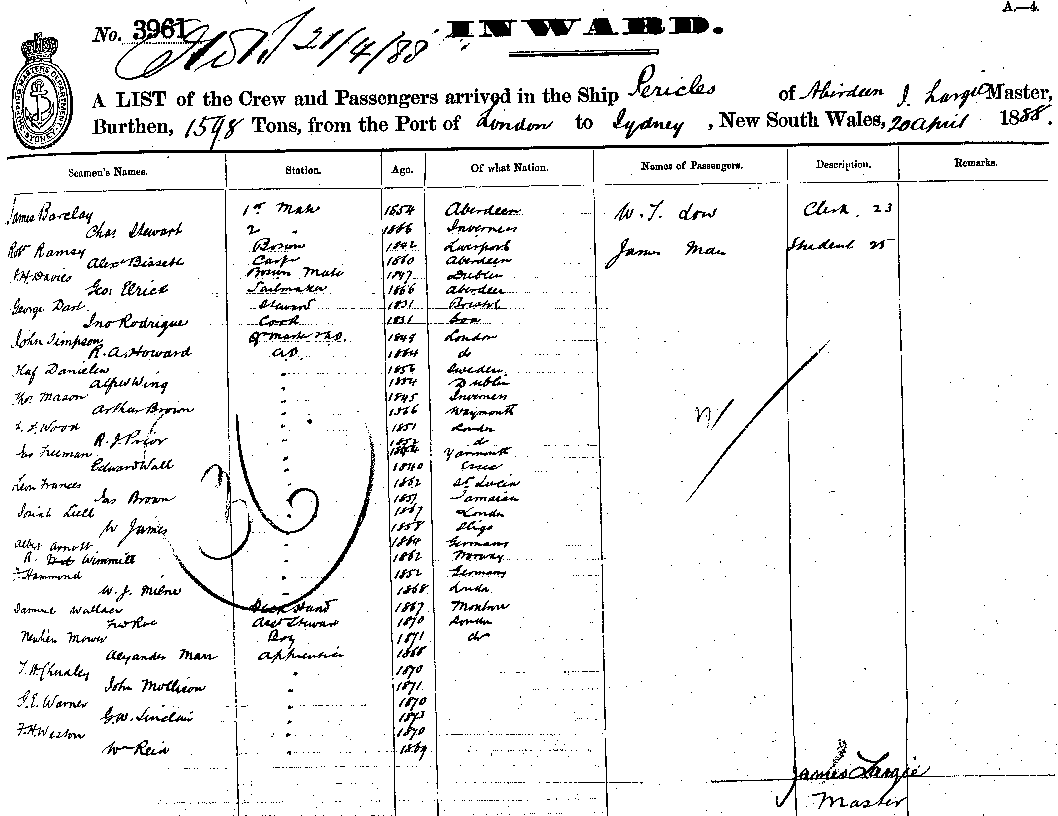 A.—4.
No. 3961
21/4/88
INWARD.
A LIST of the Crew and Passengers arrived in the Ship Pericles of Aberdeen J. Largie Master,
Burthen, 1598 Tons, from the Port of London to Sydney, New South Wales, 20 April 1888.
Seamen's Names. Station. Age. Of what Nation. Names of Passengers. Description. Remarks.
James Barclay 1st Mate 1854 Aberdeen W. T. Low Clerk 23
Chas Stewart 2 " 1866 Inverness
Robt Ramsay Bosun 1842 Liverpool James Marr Student 25
Alexr Bisseth Carpr 1860 Aberdeen
Davies Bosun Mate 1847 Dublin
Geo. Elrick Sailmaker 1866 Aberdeen
George Dart Steward 1831 Bristol
Jno Rodrigue Cook 1831 Goa
John Simpson Qr Master & AB. 1849 London
R. A. Howard AB. 1864 do
Danielen " Sweden
Alfred Wing " Dublin
Thos Mason " 1845 Inverness
Arthur Brown " 1866 Waymouth
Wood " 1851 London
R. J. Prior " do
Jas Freeman " Yarmouth
Edward Wall " 1840 Essex
Leon Frances " 1862 St Lucia
Jas Brown " 1857 Jamaica
Josiah Lull " 1867 London
W James " 1858 Sligo
Albert Arnott " 1864 Germany
R. Wimmill " 1862 Norway
Hammond " 1852 Germany
W. J. Milne " 1868 London
Samuel Wallace Deck Hand 1867
Fred Roe Asst Steward 1870 London
Mower Boy 1871 do
Alexander Marr Apprentice 1868
Chunley " 1870
John Mollison " 1871
G. E. Warner " 1870
G. W. Sinclair " 1873
F. H. Weston " 1870
Wm Reid " 1869
36
James Largie
Master